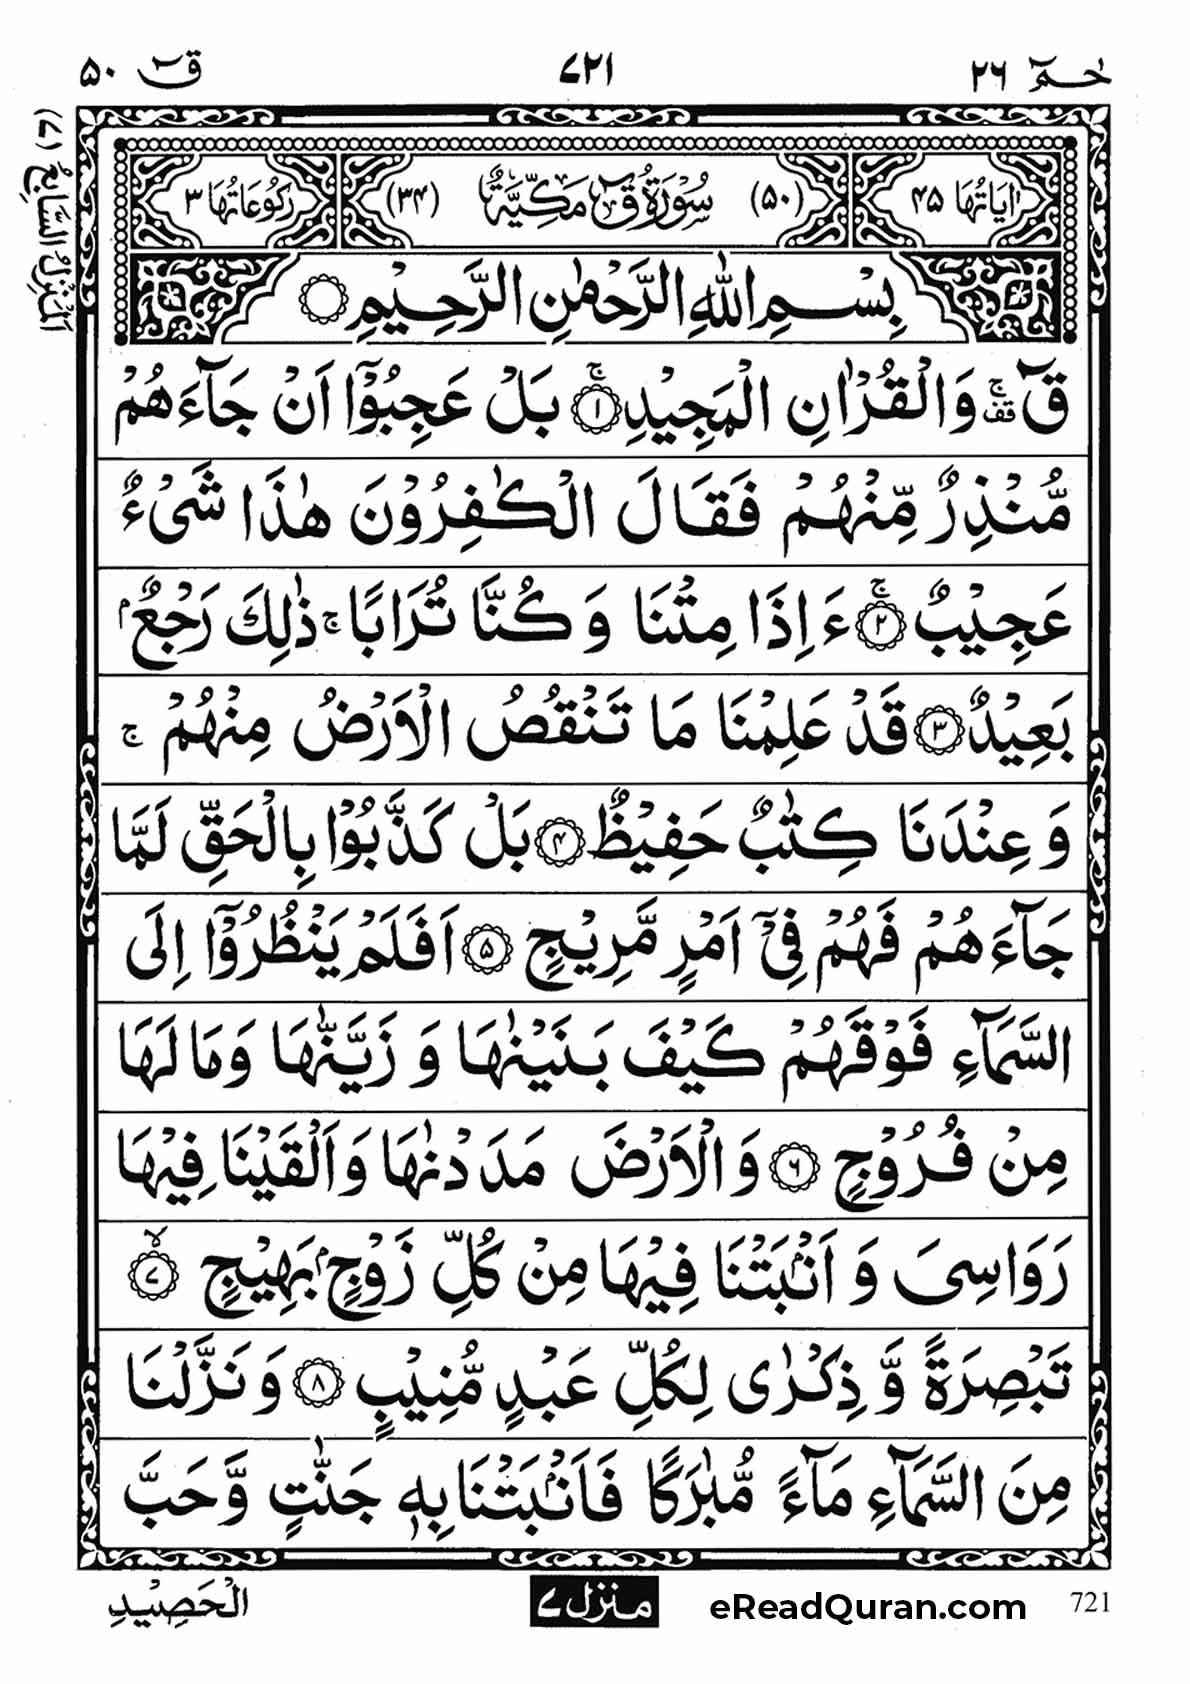 حٰمٓ ٢٦
٧٢١
قٓ ٥٠
اَلْمَنْزِلُ السَّابِعُ (٧)
اٰيَاتُهَا ٤٥
(٥٠) سُوْرَةُ قٓ مَكِّيَّةٌ (٣٤)
رُكُوْعَاتُهَا ٣
بِسْمِ اللّٰهِ الرَّحْمٰنِ الرَّحِيْمِ ۝
قٓ ۚ۟ قف وَالْقُرْاٰنِ الْمَجِيْدِ ۚ۝١ بَلْ عَجِبُوْۤا اَنْ جَآءَهُمْ
مُّنْذِرٌ مِّنْهُمْ فَقَالَ الْكٰفِرُوْنَ هٰذَا شَيْءٌ
عَجِيْبٌ ۚ۝٢ ءَاِذَا مِتْنَا وَكُنَّا تُرَابًا ۚ ذٰلِكَ رَجْعٌۢ
بَعِيْدٌ ۝٣ قَدْ عَلِمْنَا مَا تَنْقُصُ الْاَرْضُ مِنْهُمْ ۚ
وَعِنْدَنَا كِتٰبٌ حَفِيْظٌ ۝٤ بَلْ كَذَّبُوْا بِالْحَقِّ لَمَّا
جَآءَهُمْ فَهُمْ فِيْۤ اَمْرٍ مَّرِيْجٍ ۝٥ اَفَلَمْ يَنْظُرُوْۤا اِلَى
السَّمَآءِ فَوْقَهُمْ كَيْفَ بَنَيْنٰهَا وَزَيَّنّٰهَا وَمَا لَهَا
مِنْ فُرُوْجٍ ۝٦ وَالْاَرْضَ مَدَدْنٰهَا وَاَلْقَيْنَا فِيْهَا
رَوَاسِيَ وَاَنْۢبَتْنَا فِيْهَا مِنْ كُلِّ زَوْجٍۭ بَهِيْجٍ ۙ۝٧
تَبْصِرَةً وَّذِكْرٰى لِكُلِّ عَبْدٍ مُّنِيْبٍ ۝٨ وَنَزَّلْنَا
مِنَ السَّمَآءِ مَآءً مُّبٰرَكًا فَاَنْۢبَتْنَا بِهٖ جَنّٰتٍ وَّحَبَّ
الْحَصِيْدِ
منزل ٧
eReadQuran.com
721